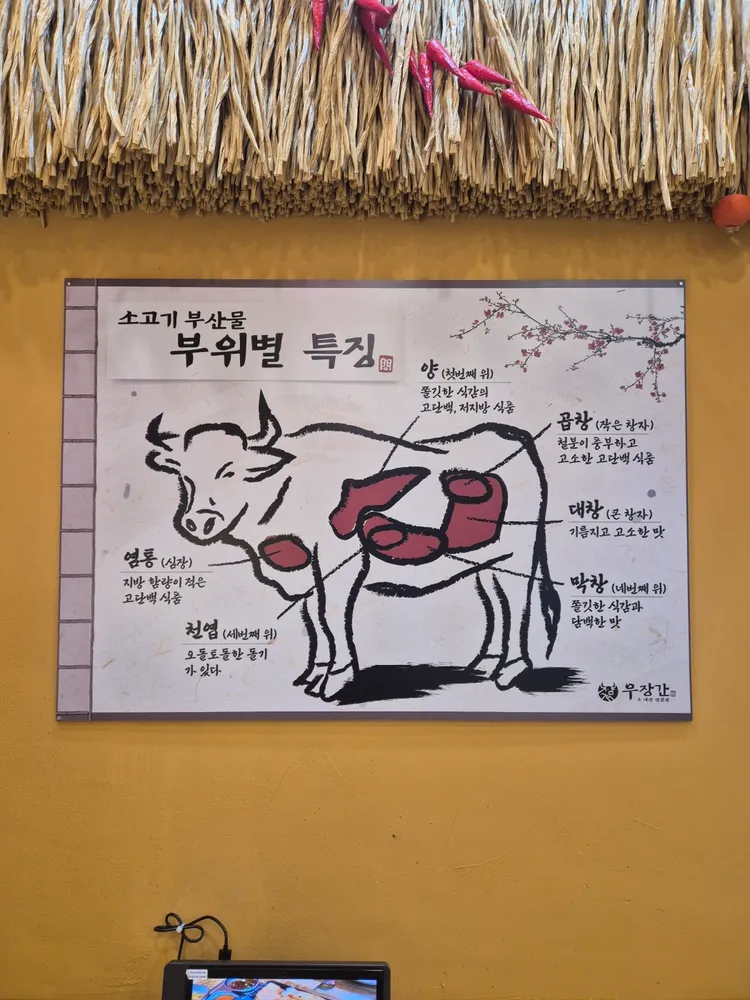 소고기 부산물
부위별 특징
양 (첫번째 위)
쫄깃한 식감의
고단백, 저지방 식품
곱창 (작은 창자)
철분이 풍부하고
고소한 고단백 식품
대창 (큰 창자)
기름지고 고소한 맛
막창 (네번째 위)
쫄깃한 식감과
담백한 맛
염통 (심장)
지방 함량이 적은
고단백 식품
천엽 (세번째 위)
오돌토돌한 돌기
가 있다
우장간